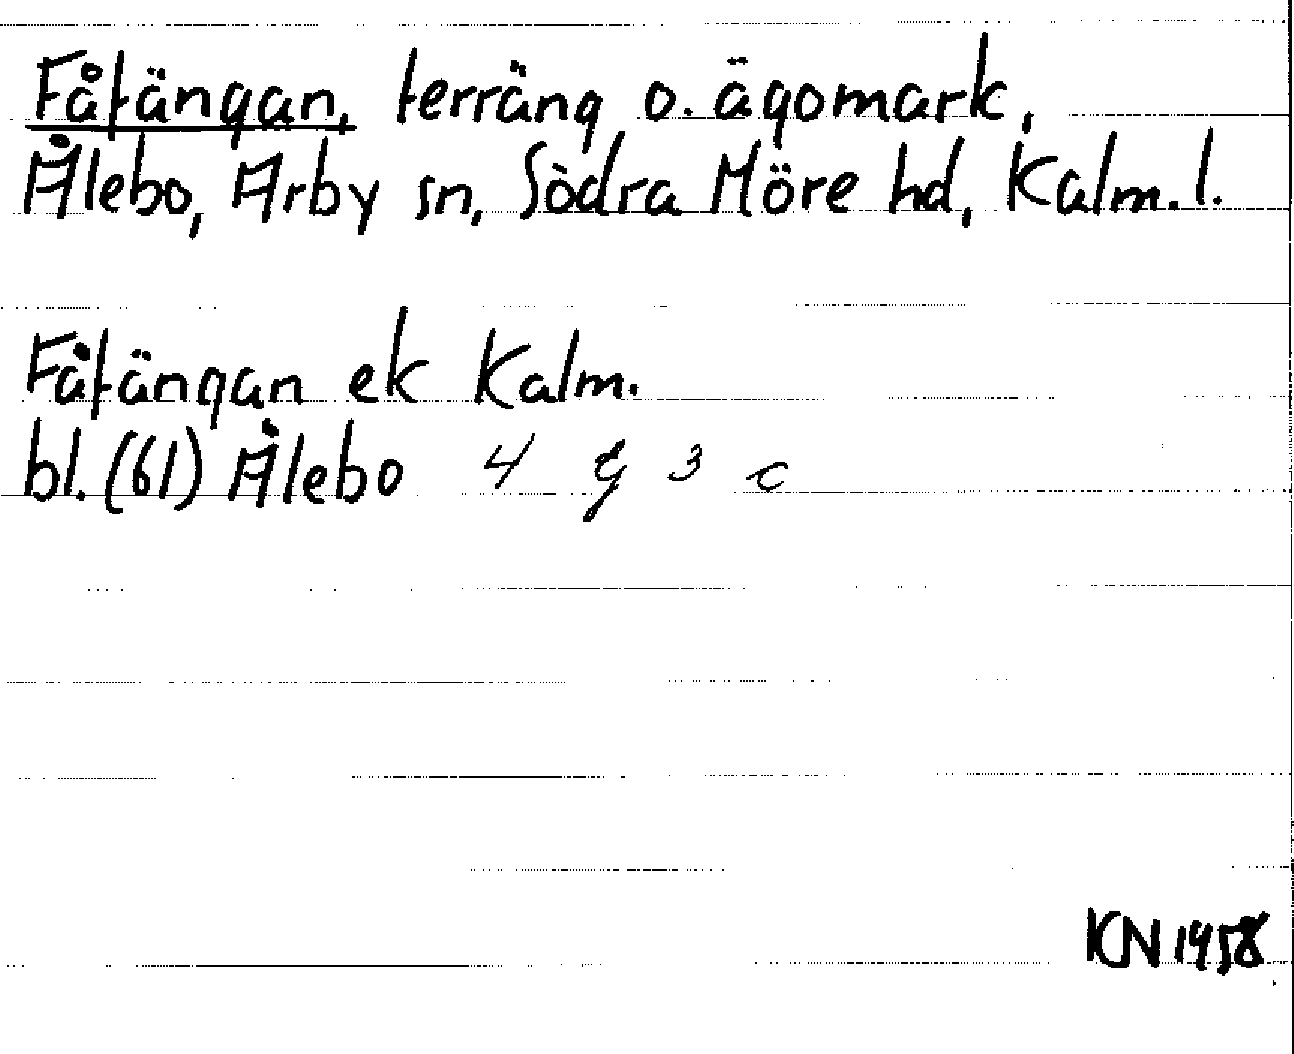 Fåfängan, terräng o. ägomark,
Ålebo, Arby sn, Södra Möre hd, Kalm. l.
Fåfängan ek Kalm.
bl. (61) Ålebo 4 G 3 c
KN 1958